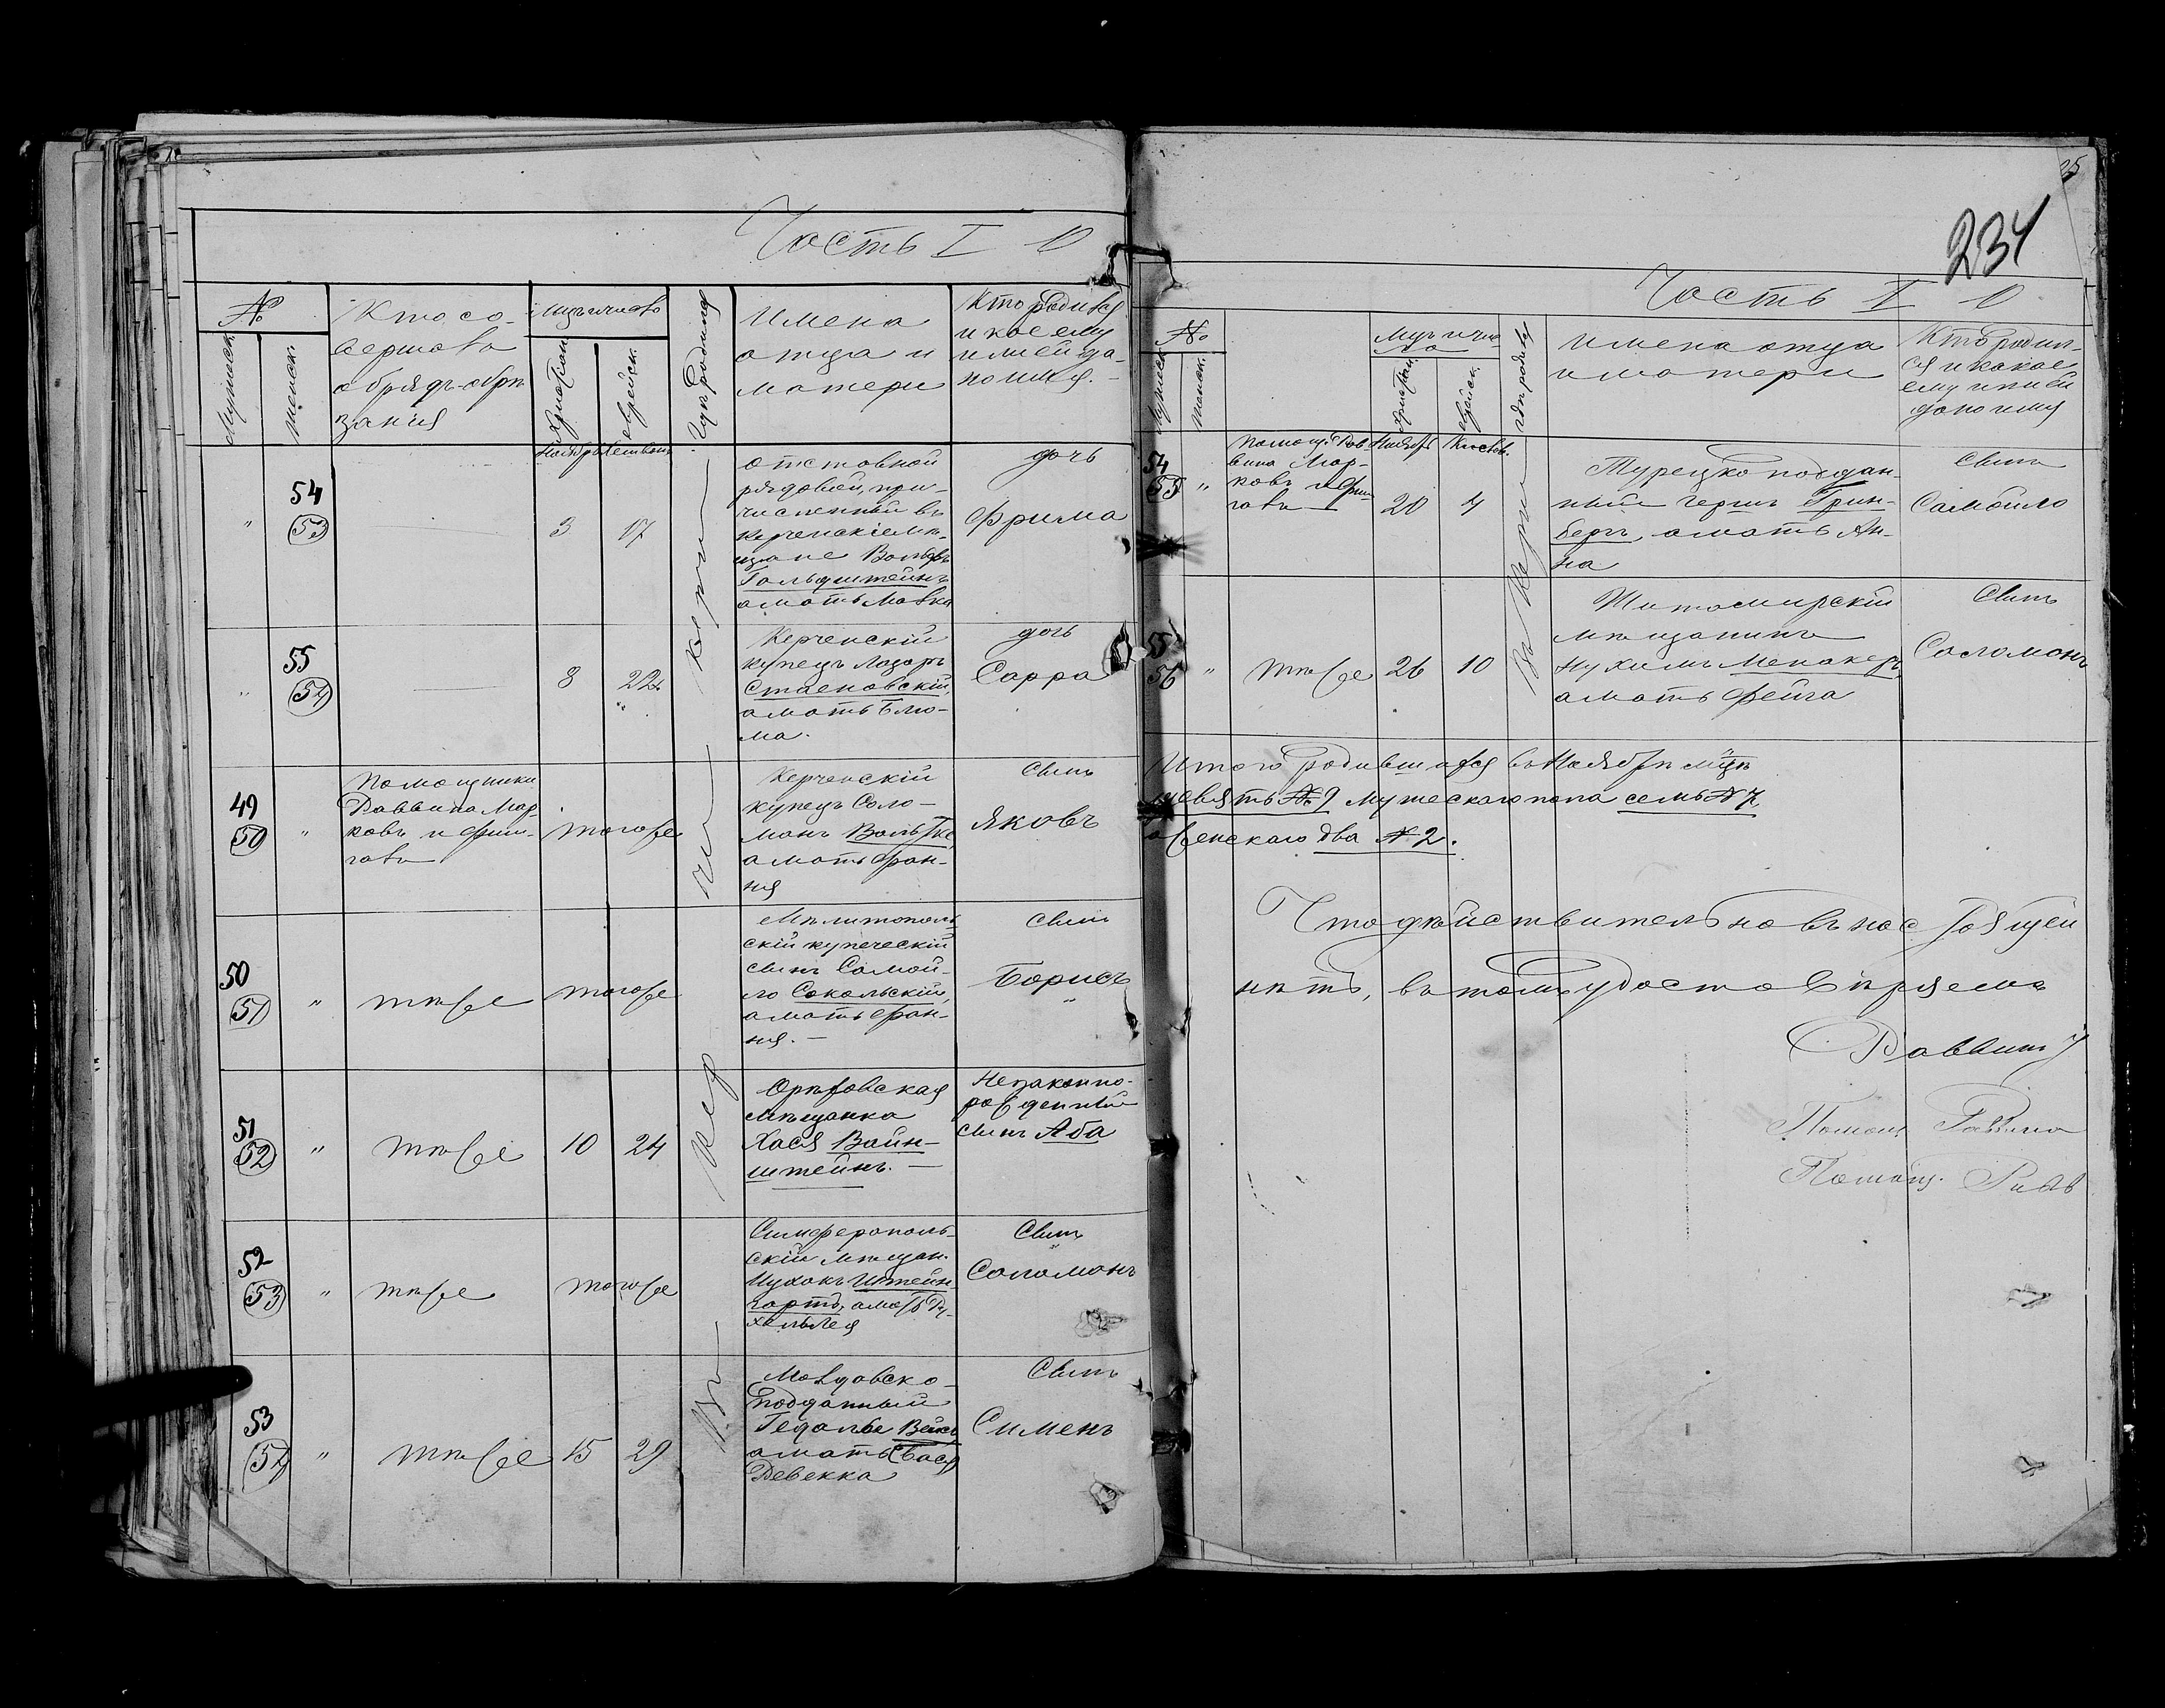 Часть I О
№
Мужеск.
Женск.
Кто со-
вершалъ
обрядъ обрѣ
занія
Мѣс. и число
Христіан.
еврейск.
Гдѣ родился
Имена
отца и
матери
Кто родился
и какое ему
или ей да-
но имя.-
Ноябрь Хешвонъ
"
54
53
3
17
отставной
рядовой, при-
численный въ
керченскіе мѣ-
щане Вольфъ
Гольдштейнъ
а мать Малка
дочь
Фрима
"
55
54
8
22
Керченскій
купецъ Лазарь
Стаеновскій,
а мать Блю-
ма.
дочь
Сарра
49
50
"
Помощники
Раввина Мар-
ковъ и
тогоже
Керченскій
купецъ Соло-
монъ
а мать Фран-
ня
сынъ
Яковъ
50
51
"
тѣже
тогоже
Мелитополь
скій купеческій
сынъ Самой-
ло Сокольскій,
а мать Фран-
ня. -
сынъ
Борисъ
51
52
"
тѣже
10
24
Орѣховская
мѣщанка
Хася Вайн-
штейнъ. -
Незаконно-
рожденный
сынъ Аба
52
53
"
тѣже
тогоже
Симферополь-
скій мѣщан.
Ицхокъ Штейн
гартъ, а мать Ру-
хель Лея
Сынъ
Соломонъ
53
54
"
тѣже
15
29
Молдавско-
подданный
Гедалье Вайсъ
а мать Бася
Ревекка
Сынъ
Сименъ
25
234
Часть I О
№
Мужеск.
Женск.
Мѣс. и чис-
ло
Христіан.
еврейск.
гдѣ родил.
Имена отца
и матери
Кто родил-
ся и какое
ему или ей
дано имя
54
55
"
Помощ. Рав
вина Мар-
ковъ и
Ноябрь
20
Кислевъ
4
Въ Керчи
Турецко поддан-
ный Гершъ Грин-
бергъ, а мать Ан-
на
Сынъ
Самойло
55
56
"
тѣже
26
10
Житомирскій
мѣщанинъ
Нухимъ Менакеръ,
а мать Фейга
Сынъ
Соломонъ
Итого родившихся въ Ноябрѣ мцѣ
девять № 9 мужескаго пола семь № 7
а женскаго два № 2.
Что дѣйствительно въ настоящей
нѣтъ, въ томъ удостовѣряемъ
Раввинъ
Помощ. Раввина
Помощ. Равв